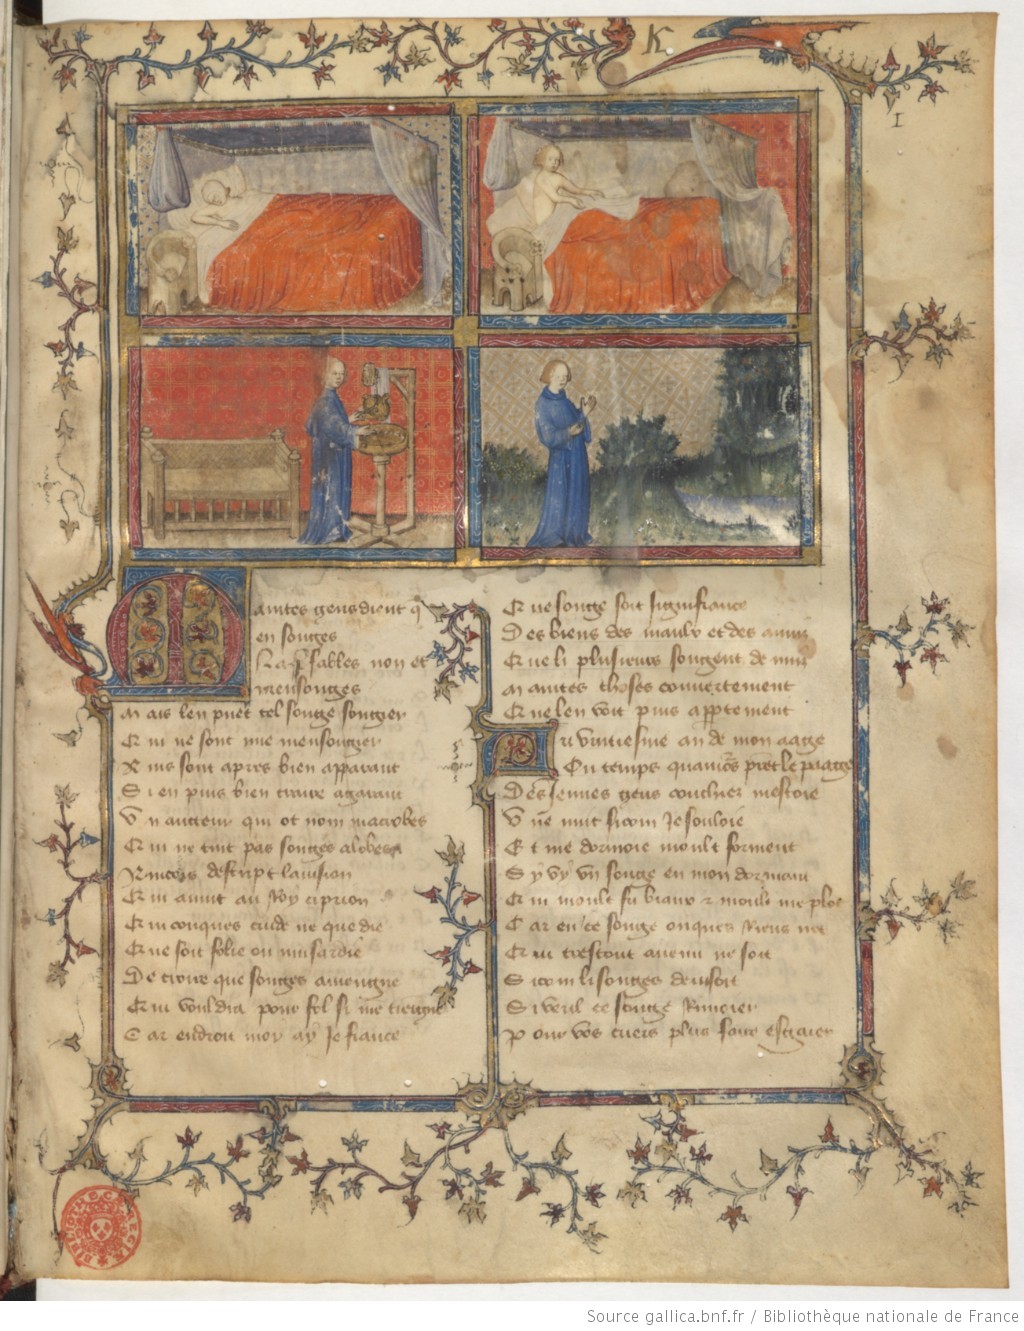 K
I
Maintes gens dient q̃
en songes
Na se fables non et
mensonges
Mais len puet tel songe songier
Qui ne sont mie mensongier
Ains sont apres bien apparant
Si en puis bien traire a garant
Un aucteur qui ot nom macrobes
Qui ne tint pas songes a lobes
Aincois descript la vision
Qui avint au Roy ciprion
Qui conques cuide ne que die
Que soit folie ou musardie
De croire que songes aviengne
Qui vouldra pour fol si me tiengne
Car endroit moy ay Je fiance
Que songe soit signifiance
Des biens des maulx et des annui
Que li plusieurs songent de nuit
Maintes choses couvertement
Que len voit puis appertement
Ou vintiesme an de mon aage
Ou temps quamõs prẽt le paage
Des Jeunes gens couchier mestoie
Une nuit sicom Je souloie
Et me dormoie moult forment
Sy vy un songe en mon dormant
Qui moult fu biaux & moult me plot
Car en ce songe onques Riens not
Qui trestout avenu ne soit
Sicom li songes devisoit
Si veul ce songe Rimoier
Pour vos cuers plus faire esgaier
BIBLIOTHECAE REGIAE
Source gallica.bnf.fr / Bibliothèque nationale de France